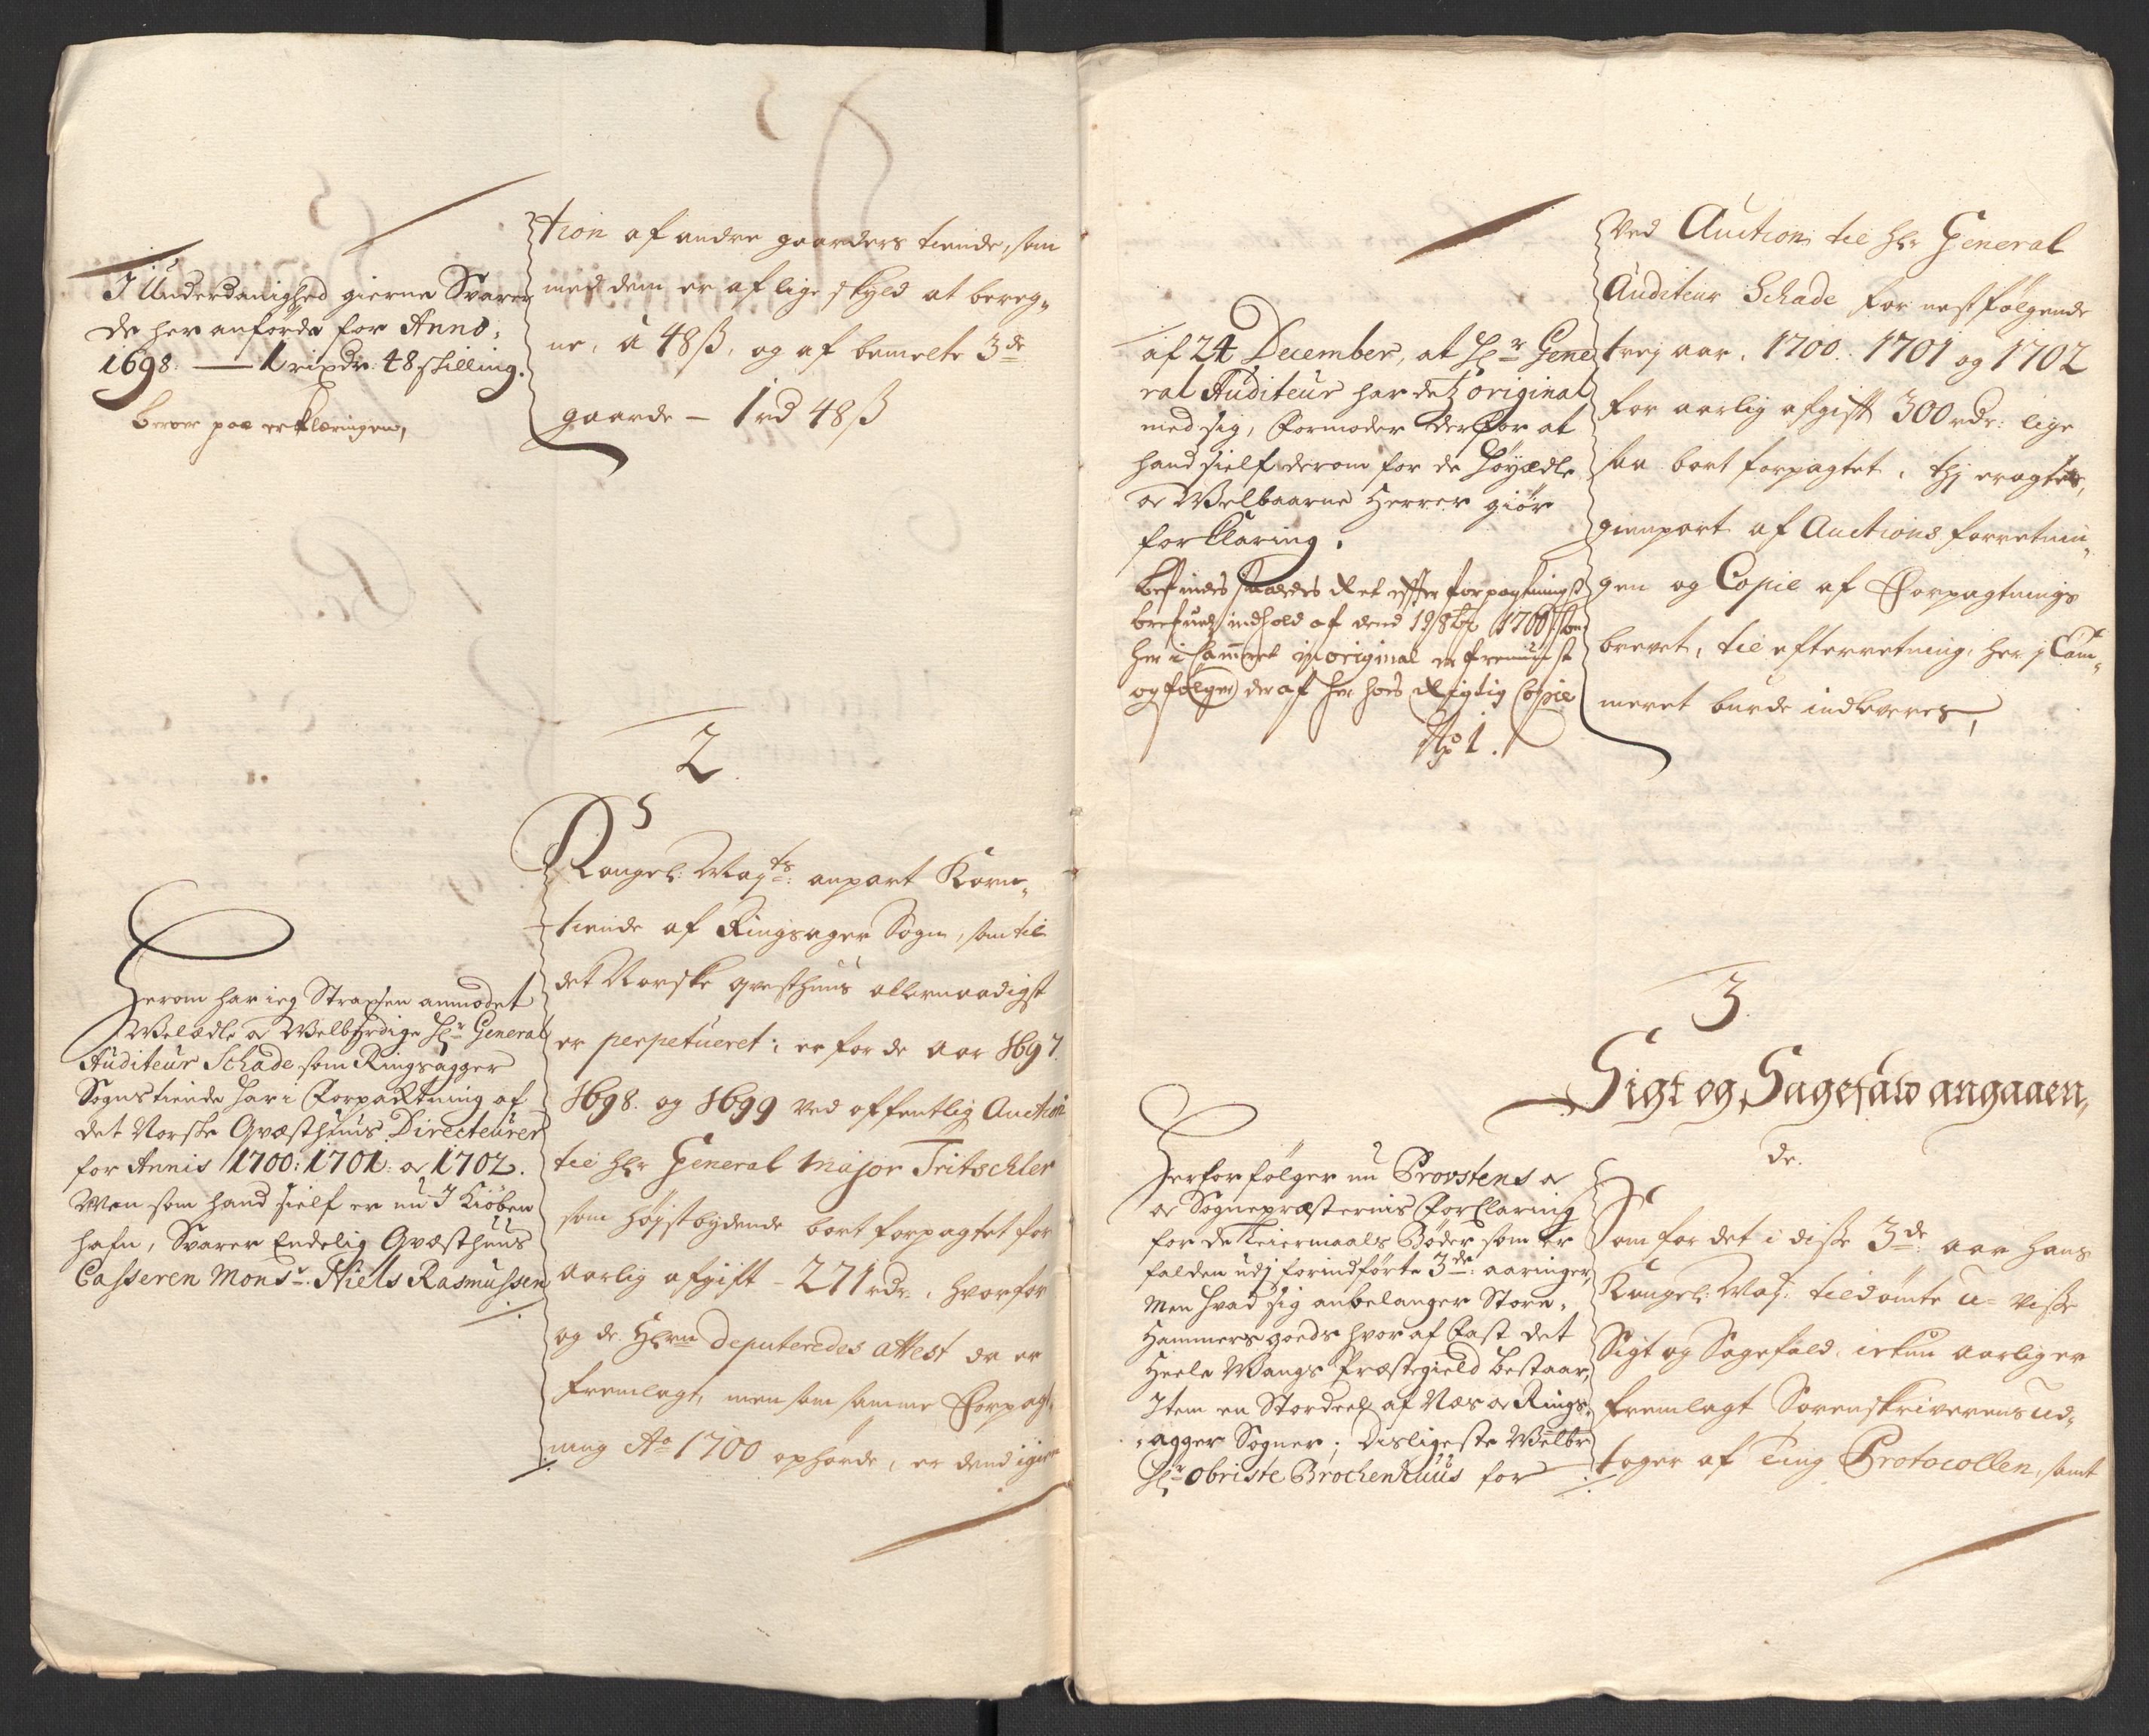 I Underdanighed gierne Svarer
de her anförde for Anno:
1698. — 1 rixdr: 48 skilling.
beroer paa erklæringen,
tion af andre gaarders tiende, som
med dem er af lige skyld at bereg,,
ne, â 48 ß, og af bemelte 3de
gaarde — 1 rd 48 ß
2
Herom har ieg Straxsen anmodet
Welædle oc Welbyrdige Hr General
Auditeur Schade som Ringsagger
Sogns tiende har i Forpactning af
det Norske Qvæsthuus Directeurer
for Annis 1700: 1701: oc 1702.
Men som hand sielf er nu I Kiöben
hafn, Svarer Endelig Qvæsthuus
Casseren Monsr. Niels Rasmussen
Kongel: Mayts: anpart Korn,,
tiende af Ringsager Sogn, som til
det Norske qvesthuus allernaadigst
er perpetueret; er for de aar 1697.
1698. og 1699 ved offentlig Auction
til Hr General Major Tritschler
som høystbydende bort forpagtet for
aarlig afgift - 271 rdr, hvorfor
og de Hrrn deputeredes attest da er
fremlagt, men som samme Forpagt,,
ning Ao 1700 ophørde, er dend igien
af 24 December, at Hr Gene
ral Auditeur har det original
med sig, Formoder derfor at
hand sielf derom for de Höyædle
oc Welbaarne Herrer giör
forklaring.
befindes saaledes Ret efter forpagtnings
brefvets indhold af dend 19 8br 1700 som
her i Cammeret in original er fremvist
og følger deraf her hos Rigtig Copie
No 1.
Ved Auction til Hr General
Auditeur Schade for nestfølgende
trej aar, 1700. 1701 og 1702
for aarlig afgift 300 rdr: lige
saa bort forpagtet, thj eragtes,
gienpart af Auctions forretnin,,
gen og Copie af Forpagtnings
brevet, til efterretning, her j Cam,,
meret burde indleveres,
3.
Sigt og Sagefald angaaen,,
de.
Herfor følger nu Provstens oc
oc Sognepræsternis Forklaring
for de Leiermaals Bøder som er
falden udj forindførte 3de: aaringer,
Men hvad sig anbelanger Store,,
Hammers goeds hvor af fast det
Heele Wangs Præstegield bestaar,
Item en Stordeel af Næs oc Rings,,
agger Sogner; Disligeste Welbr
Hr: Obriste Brochenhuus for
Som for det i disse 3de: aar Hans
Kongel: May: tildømte u-visse
Sigt og Sagefald, ickun aarlig er
fremlagt Sorenskriverens ud,,
toger af Ting Protocollen, samt